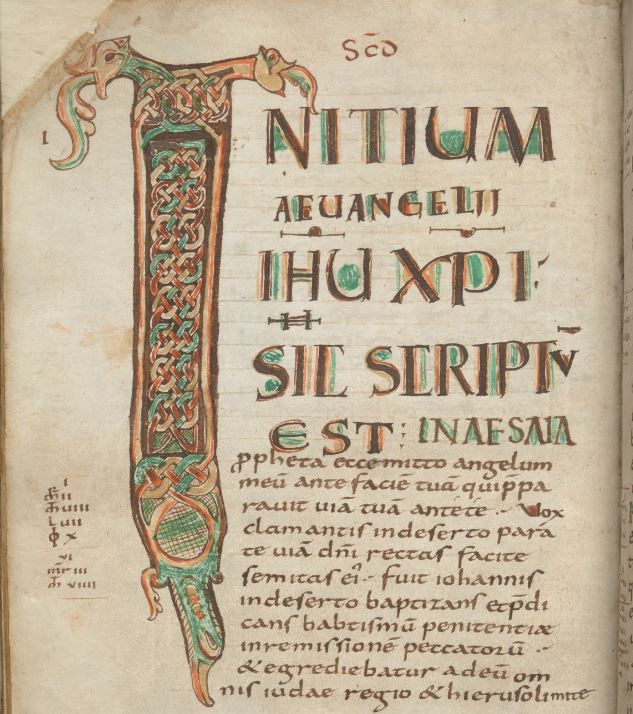 Scd̄
INITIUM
AEUANGELII
IHU XPI·
SIE SCRIPTV̄
EST: IN AESAIA
ꝓpheta ecce mitto angelum
meū ante facie tuā qui p̄pa
rauit uiā tuā ante te · Uox
clamantis in deserto para
te uiā dn̄i rectas facite
semitas ei᾽ · fuit iohannis
in deserto baptizans et p̄di
cans babtismū penitentiæ
in remissionē peccatorū ·
& egrediebatur ad eū om
nis iudae regio & hierusolimite
I
I
m̄r II
m̄ VIIII
L VII
ɸ X
VI
m̄r III
m̄ VIIII